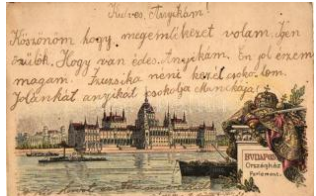 Kedves, Anyikám!
Köszönöm hogy megemlékezet volam. Igen
örülök. Hogy van édes. Anyikám. En jol erzem
magam. Zsuzsika neni kezét csokolom.
Jolánkát anyikát csokolja Mancikája
BUDAPEST
Országház
Parlament.